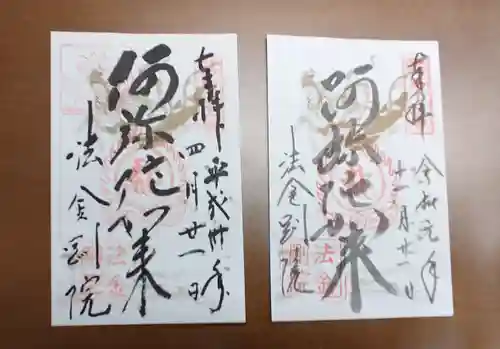 奉拝
平成卅年
四月廿一日
阿弥陀如来
法金剛院
奉拝
令和元年
十一月廿一日
阿弥陀如来
法金剛院